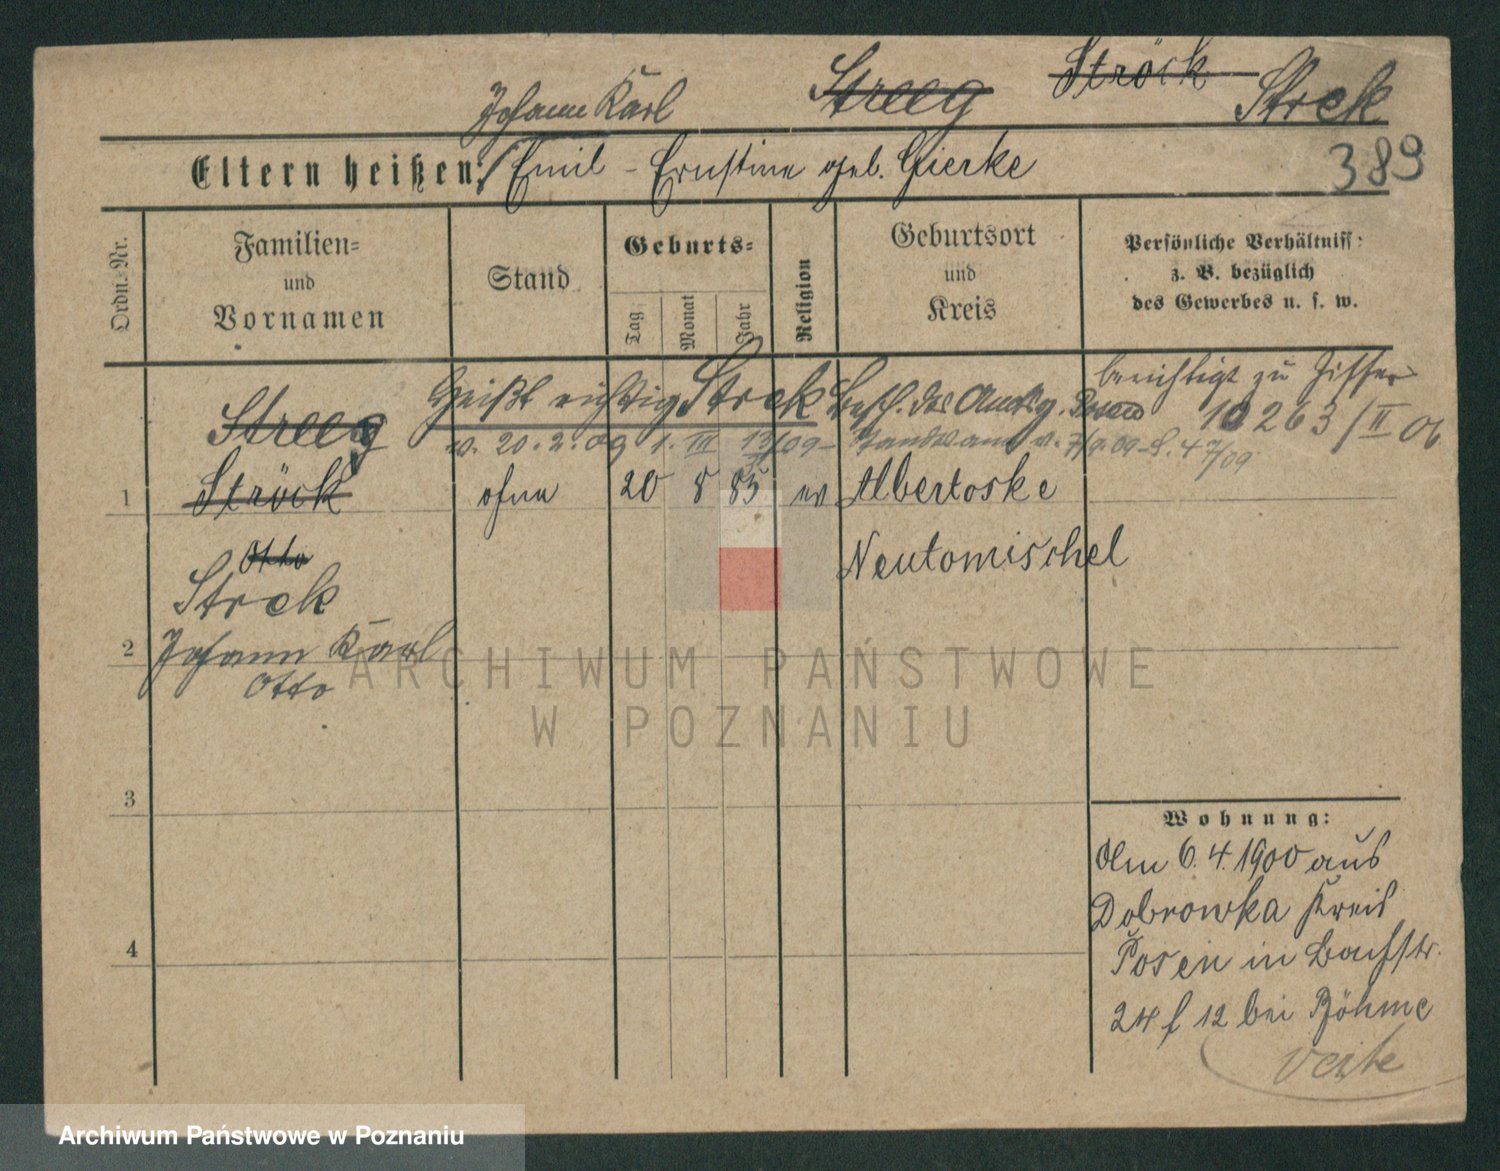 Johann Karl Streeg Ströck Strek
Eltern heißen: Emil - Ernstine geb. Gierke 389
Ordn.-Nr.
Familien-
und
Vornamen
Stand
Geburts-
Tag
Monat
Jahr
Religion
Geburtsort
und
Kreis
Persönliche Verhältniss:
z. B. bezüglich
des Gewerbes u. s. w.
Streeg heißt richtig Strek Besch. des Amtsg. Posen
v. 20.2.09 1. III 13/09 - Standesamt v. 7/9.09 - S. 4 7/09
berichtigt zu Ziffer
10263/II 06
1 Ströck ohne 20 8 85 ev Albertoske
Neutomischel
Otto
Strek
2 Johann Karl
Otto
3
4
Wohnung:
Am 6.4.1900 aus
Dobrowka Kreis
Posen in Bachstr.
24 f 12 bei Böhme
ARCHIWUM PAŃSTWOWE
W POZNANIU
Archiwum Państwowe w Poznaniu